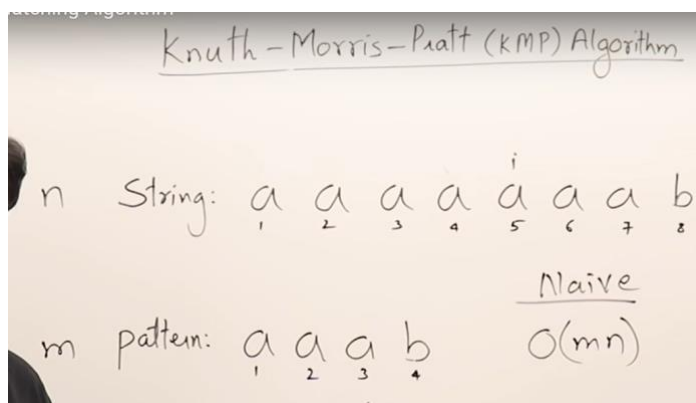 Knuth-Morris-Pratt (KMP) Algorithm
i
n String: a a a a a a a b
1 2 3 4 5 6 7 8
Naive
m pattern: a a a b O(mn)
1 2 3 4